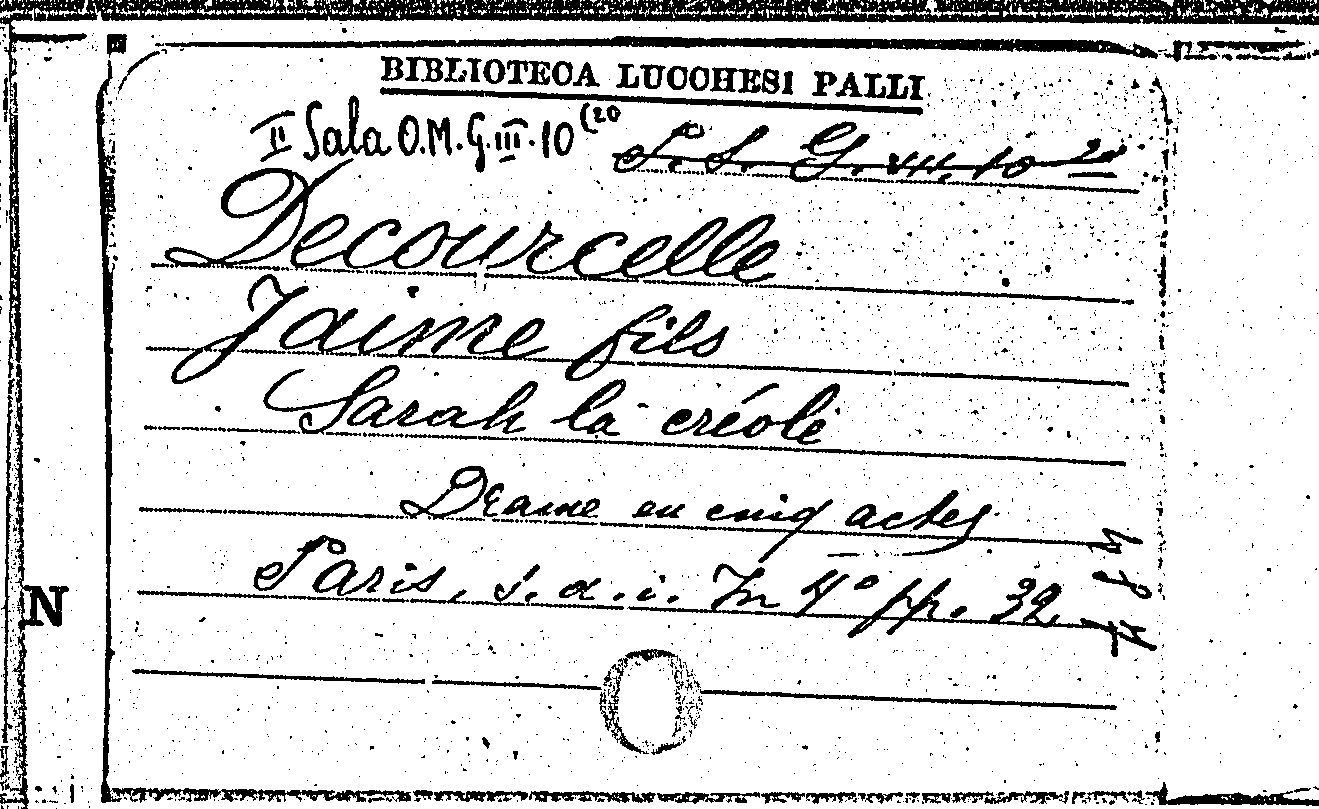 BIBLIOTECA LUCCHESI PALLI
II Sala O.M.G.III.10(20
S. S. G. VII. 10 20
Decourcelle
Jaime fils
Sarah la créole
Drame en cinq actes
Paris, s. d. i. In 4° pp. 32.
N